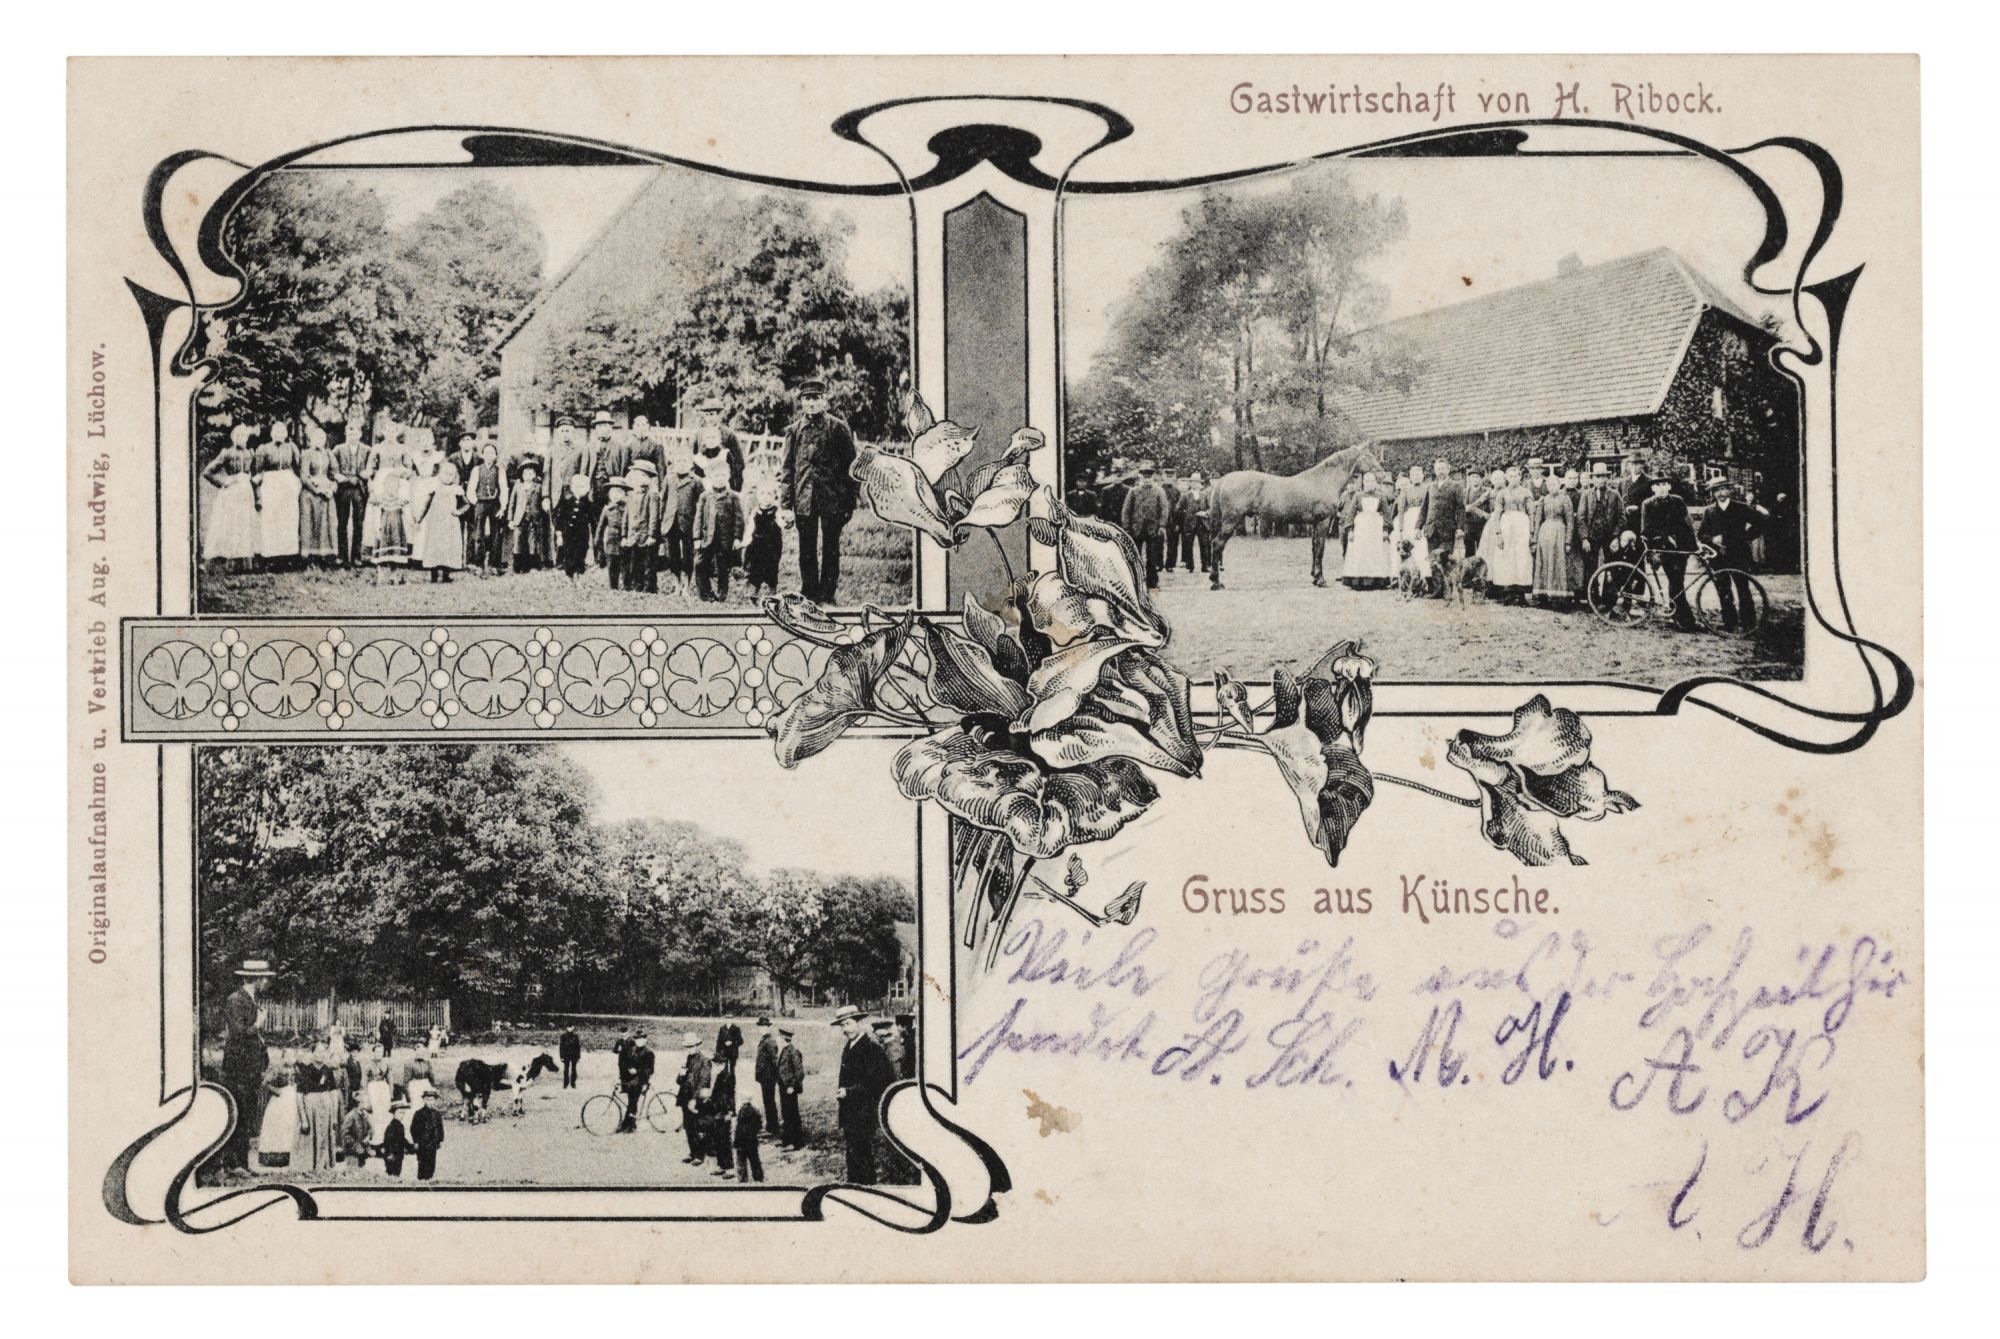 Gastwirtschaft von H. Ribock.
Originalaufnahme u. Vertrieb Aug. Ludwig, Lüchow.
Gruss aus Künsche.
Viele Grüße aus der Hochzeit hir
sendet A. Sch. M. H. A K
A. H.